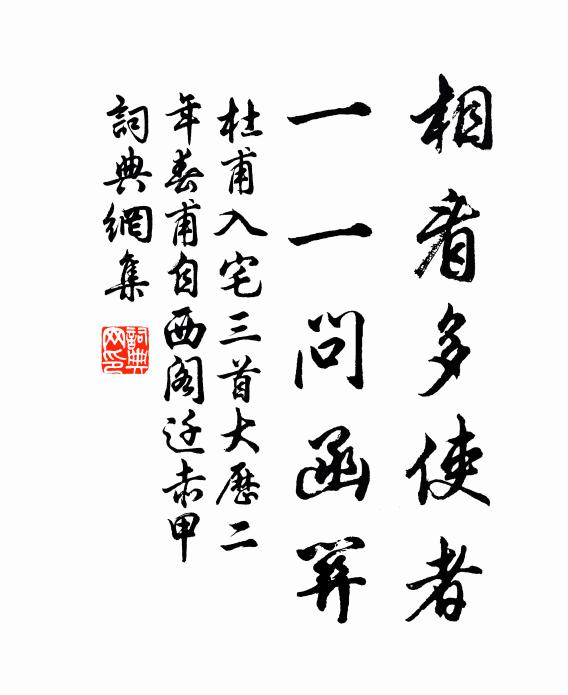 相看多使者
一一問函關
杜甫入宅三首大歷二
年春甫自西閣迁赤甲
詞典網集
詞典网印